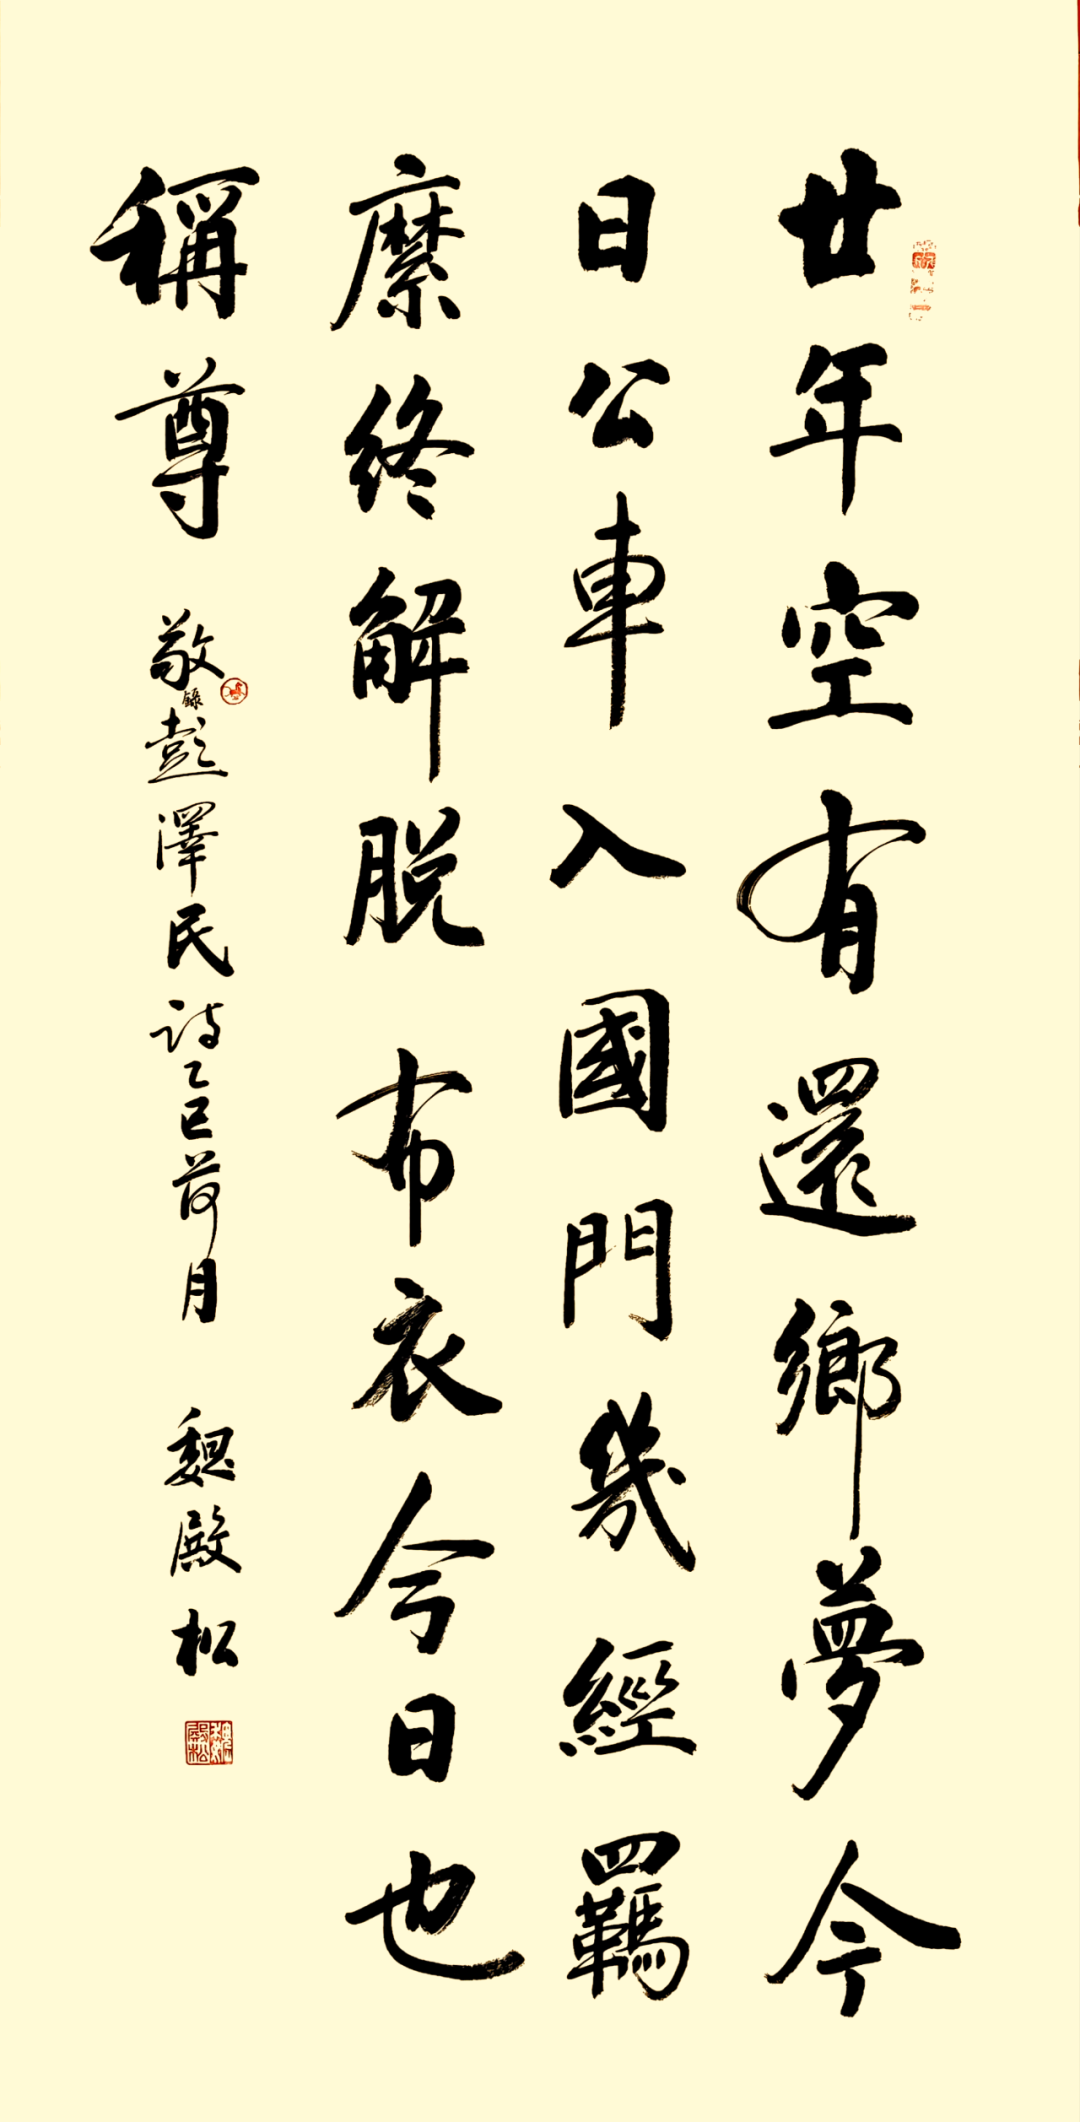 廿年空有還鄉夢今
日公車入國門幾經羈
縻終解脱布衣今日也
稱尊
敬錄彭澤民詩乙巳荷月
魏殿松
魏殿松